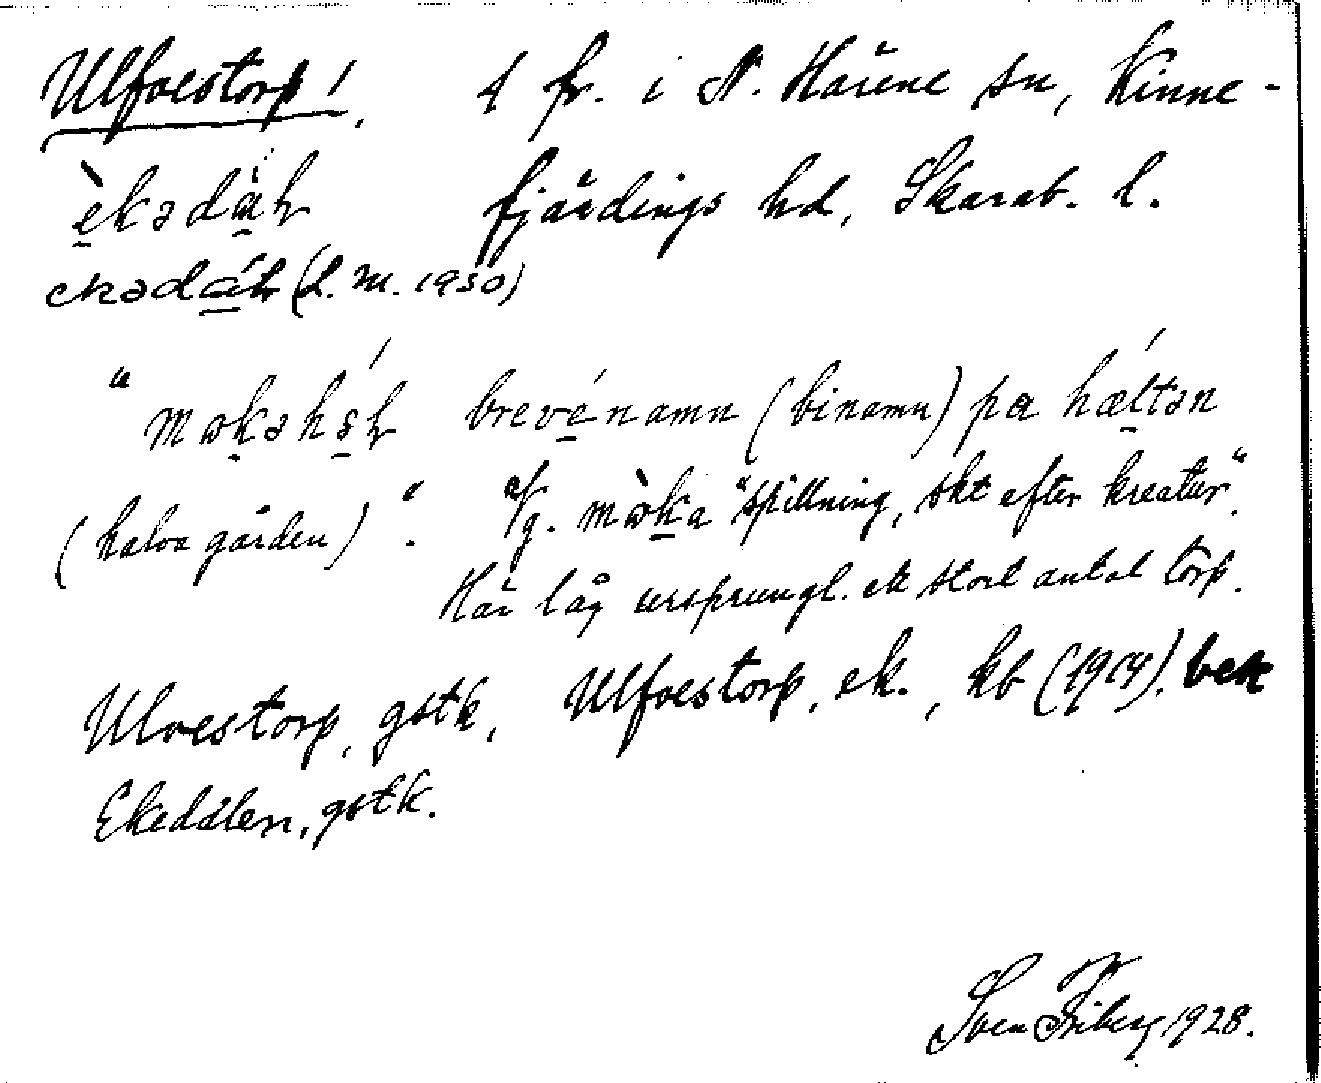 Ulfvestorp! 1 fr. i N. Härene sn, Kinne-
èkədäɫ fjärdings hd, Skarab. l.
ekədáɫ (L. M. 1930)
"møkəhɫ brevénamn (binamn) på hǽltən
(halva gården)". Jfr. mø̀ka "spillning, skt efter kreatur".
Här låg ursprungl. ett stort antal torp.
Ulvestorp, gstk, Ulfvestorp, ek., kb (1914).
Ekedalen, gstk.
Sven Friberg 1928.